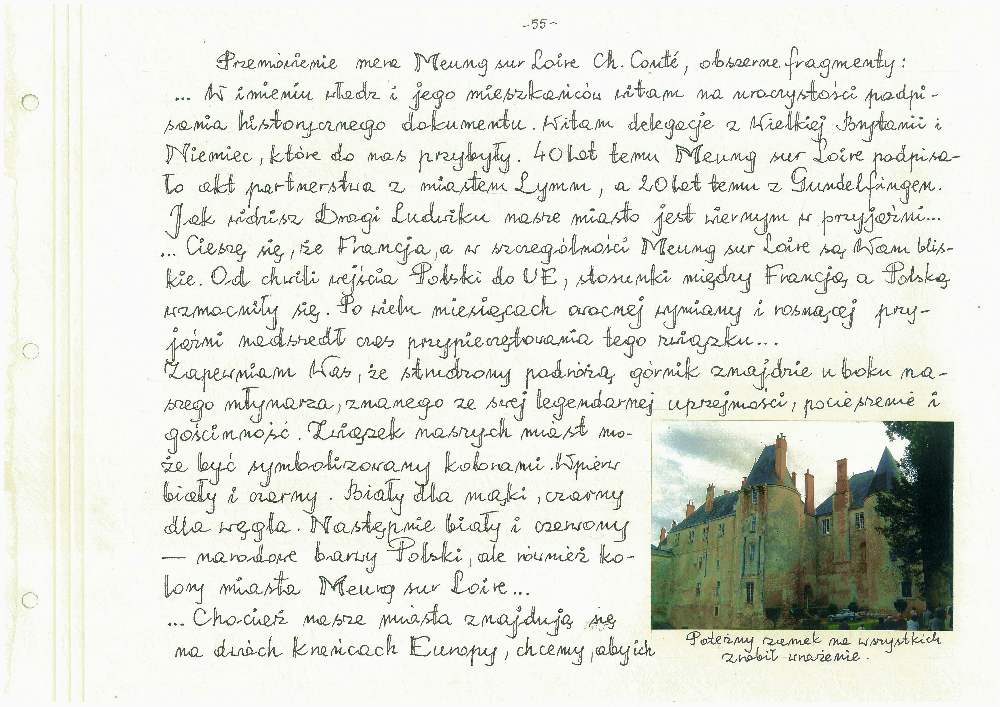 -55-
Przemówienie mera Meung sur Loire Ch. Conté, obszerne fragmenty:
... W imieniu władz i jego mieszkańców witam na uroczystości podpi-
sania historycznego dokumentu. Witam delegacje z Wielkiej Brytanii i
Niemiec, które do nas przybyły. 40 lat temu Meung sur Loire podpisa-
ło akt partnerstwa z miastem Lymm, a 20 lat temu z Gundelfingen.
Jak widzisz Drogi Ludwiku nasze miasto jest wiernym w przyjaźni...
... Cieszę się, że Francja, a w szczególności Meung sur Loire są Wam blis-
kie. Od chwili wejścia Polski do UE, stosunki między Francją a Polską
wzmocniły się. Po wielu miesiącach owocnej wymiany i rosnącej przy-
jaźni nadszedł czas przypieczętowania tego związku...
Zapewniam Was, że strudzony podróżą górnik znajdzie u boku na-
szego młynarza, znanego ze swej legendarnej uprzejmości, pocieszenie i
gościnność. Związek naszych miast mo-
że być symbolizowany kolorami. Wpierw
biały i czarny. Biały dla mąki, czarny
dla węgla. Następnie biały i czerwony
— narodowe barwy Polski, ale również ko-
lory miasta Meung sur Loire...
... Chociaż nasze miasta znajdują się
na dwóch krańcach Europy, chcemy, aby ich
Potężny zamek na wszystkich
zrobił wrażenie.